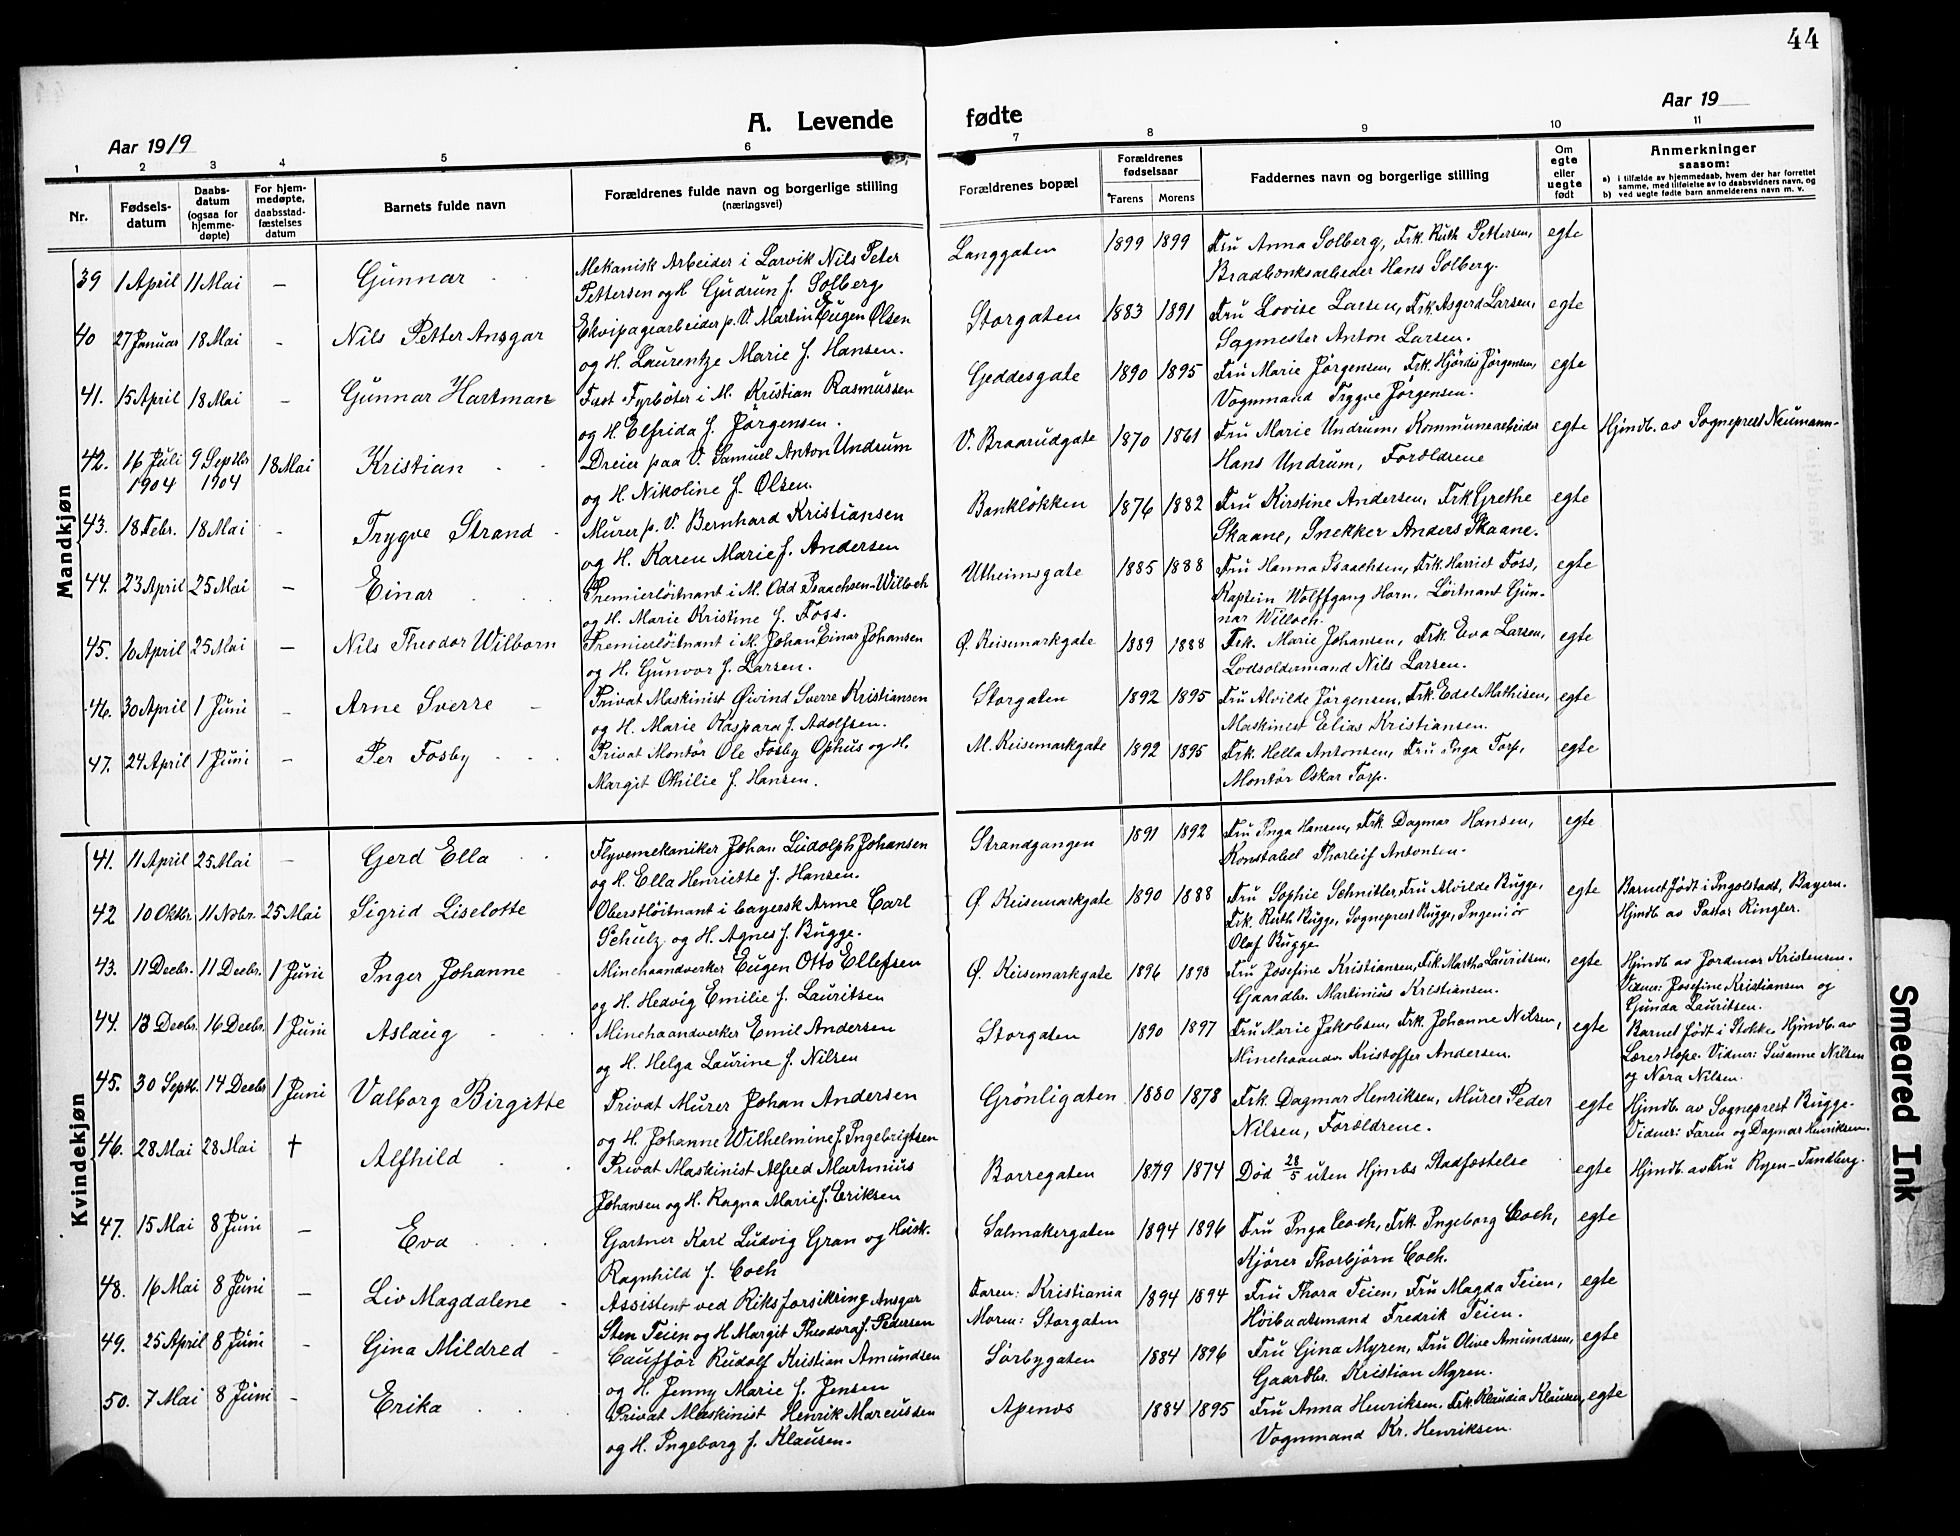 44
Aar 1919
A. Levende fødte
Aar 19
1 2 3 4 5 6 7 8 9 10 11
Nr.
Fødsels-
datum
Daabs-
datum
(ogsaa for
hjemme-
døpte)
For hjem-
medøpte,
daabsstad-
fæstelses
datum
Barnets fulde navn
Forældrenes fulde navn og borgerlige stilling
(næringsvei)
Forældrenes bopæl
Forældrenes
fødselsaar
Farens Morens
Faddernes navn og borgerlige stilling
Om
egte
eller
uegte
født
Anmerkninger
saasom:
a) i tilfælde av hjemmedaab, hvem der har forrettet
samme, med tilføielse av to daabsvidners navn, og
b) ved uegte fødte barn anmelderens navn m. v.
Mandkjøn
39 1 April 11 Mai – Gunnar Mekanisk Arbeider i Larvik Nils Peter Langgaten 1899 1899 Fru Anna Solberg, Frk. Ruth Pettersen, egte
Pettersen og H. Gudrun f. Solberg Hans Solberg.
40 27 Januar 18 Mai – Nils Petter Ansgar Ekvipagearbeider p. V. Martin Eugen Olsen Storgaten 1883 1891 Fru Lovise Larsen, Frk. Asgerd Larsen, egte
og H. Laurentze Marie f. Hansen. Sagmester Anton Larsen.
41. 15 April 18 Mai – Gunnar Hartman Fast Fyrbøter i M. Kristian Rasmussen Geddesgate 1890 1895 Fru Marie Jørgensen, Frk. Hjørdis Jørgensen, egte
og H. Elfrida f. Jørgensen. Vognmand Trygve Jørgensen.
42. 16 Juli 9 Septbr 18 Mai Kristian Dreier paa V. Samuel Anton Undrum V. Braarudgate 1870 1861 Fru Marie Undrum, Kommunearbeider egte Hjmdb. av Sogneprest Neumann-
1904 1904 og H. Nikoline f. Olsen. Hans Undrum, Forældrene
43. 18 Febr. 18 Mai - Trygve Strand Murer p. V. Bernhard Kristiansen Bankløkken 1876 1882 Fru Kirstine Andersen, Frk Grethe egte
og H. Karen Marie f. Andersen Skaane, Snekker Anders Skaane.
44. 23 April 25 Mai – Einar Premierløitnant i M. Odd Isaachsen-Willoch Utheimsgate 1885 1888 Fru Hanna Isaachsen, Frk. Harriet Foss, egte
og H. Marie Kristine f. Foss. Kaptein Wolffgang Horn, Løitnant Gun-
nar Willoch.
45. 10 April 25 Mai – Nils Theodor Wilborn Premierløitnant i M. Johan Einar Johansen Ø. Keisemarkgate 1889 1888 Frk. Marie Johansen, Frk. Eva Larsen, egte
og H. Gunvor f. Larsen. Lodsoldermand Nils Larsen.
46. 30 April 1 Juni – Arne Sverre Privat Maskinist Øivind Sverre Kristiansen Storgaten 1892 1895 Fru Alvilde Jørgensen, Frk. Edel Mathisen, egte
og H. Marie Kaspara f. Adolfsen. Maskinist Elias Kristiansen.
47. 24 April 1 Juni – Per Fosby Privat Montør Ole Fosby Ophus og H. M. Keisemarkgate 1892 1895 Frk. Hella Antonsen, Fru Inga Torp, egte
Margit Othilie f. Hansen. Montør Oskar Torp.
Kvindekjøn
41. 11 April 25 Mai – Gerd Ella Flyvemekaniker Johan Ludolph Johansen Strandgangen 1891 1892 Fru Inga Hansen, Frk. Dagmar Hansen, egte
og H. Ella Henriette f. Hansen. Konstabel Thorleif Antonsen.
42 10 Oktbr. 11 Nobr. 25 Mai Sigrid Liselotte Oberstløitnant i bayersk Arme Carl Ø Keisemarkgate 1890 1888 Fru Sophie Schnitler, Fru Alvilde Bugge, egte Barnet født i Ingolstadt, Bayern.
Schulz og H. Agnes f. Bugge. Frk. Ruth Bugge, Sogneprest Bugge, Ingeniør Hjmdb av Pastor Ringler.
Olaf Bugge
43. 11 Decbr. 11 Decbr. 1 Juni Inger Johanne Minehaandverker Eugen Otto Ellefsen Ø. Keisemarkgate 1896 1898 Fru Josefine Kristiansen, Frk. Martha Lauritsen, egte Hjmdb av Jordmor Kristensen.
og H. Hedvig Emilie f. Lauritsen Gaardbr. Martinius Kristiansen. Vidner: Josefine Kristiansen og
Gunda Lauritsen.
44. 13 Decbr. 16 Decbr. 1 Juni Aslaug Minehaandverker Emil Andersen Storgaten 1890 1897 Fru Marie Jakobsen, Frk. Johanne Nilsen, egte Barnet født i Stokke, Hjmdb. av
og H. Helga Laurine f. Nilsen Minehaandv. Kristoffer Andersen. Lærer Hope. Vidner: Susanne Nilsen
og Nora Nilsen.
45. 30 Septb. 14 Decbr 1 Juni Valborg Birgitte Privat Murer Johan Andersen Grønligaten 1880 1878 Frk. Dagmar Henriksen, Murer Peder egte Hjmdb. av Sogneprest Bugge-
og H. Johanne Wilhelmine f. Ingebrigtsen Nilsen, Forældrene. Vidner: Faren og Dagmar Henriksen.
46. 28 Mai 28 Mai † Alfhild Privat Maskinist Alfred Martinius Borregaten 1879 1874 Død 28/5 uten Hjmbs Stadfæstelse egte Hjmdb. av Fru Ryen-Tandberg.
Johansen og H. Ragna Marie f. Eriksen
47. 15 Mai 8 Juni – Eva Gartner Karl Ludvig Gran og Husk. Salmakergaten 1894 1896 Fru Inga Coch, Frk Ingeborg Coch, egte
Ragnhild f. Coch Kjører Thorbjørn Coch.
48. 16 Mai 8 Juni – Liv Magdalene Assistent ved Riksforsikring Ansgar Faren: Kristiania 1894 1894 Fru Thora Teien, Fru Magda Teien, egte
Sten Teien og H. Margit Theodora f. Pedersen Moren: Storgaten Høibaatsmand Fredrik Teien.
49. 25 April 8 Juni - Gina Mildred Cauffør Rudolf Kristian Amundsen Sørbygaten 1884 1896 Fru Gina Myren, Fru Olive Amundsen, egte
og H. Jenny Marie f. Jensen Gaardbr. Kristian Myren.
50. 7 Mai 8 Juni – Erika Privat Maskinist Henrik Marcussen Apenes 1884 1895 Fru Anna Henriksen, Frk. Klaudia Klausen, egte
og H. Ingeborg f. Klausen. Vognmand Kr. Henriksen.
Smeared Ink